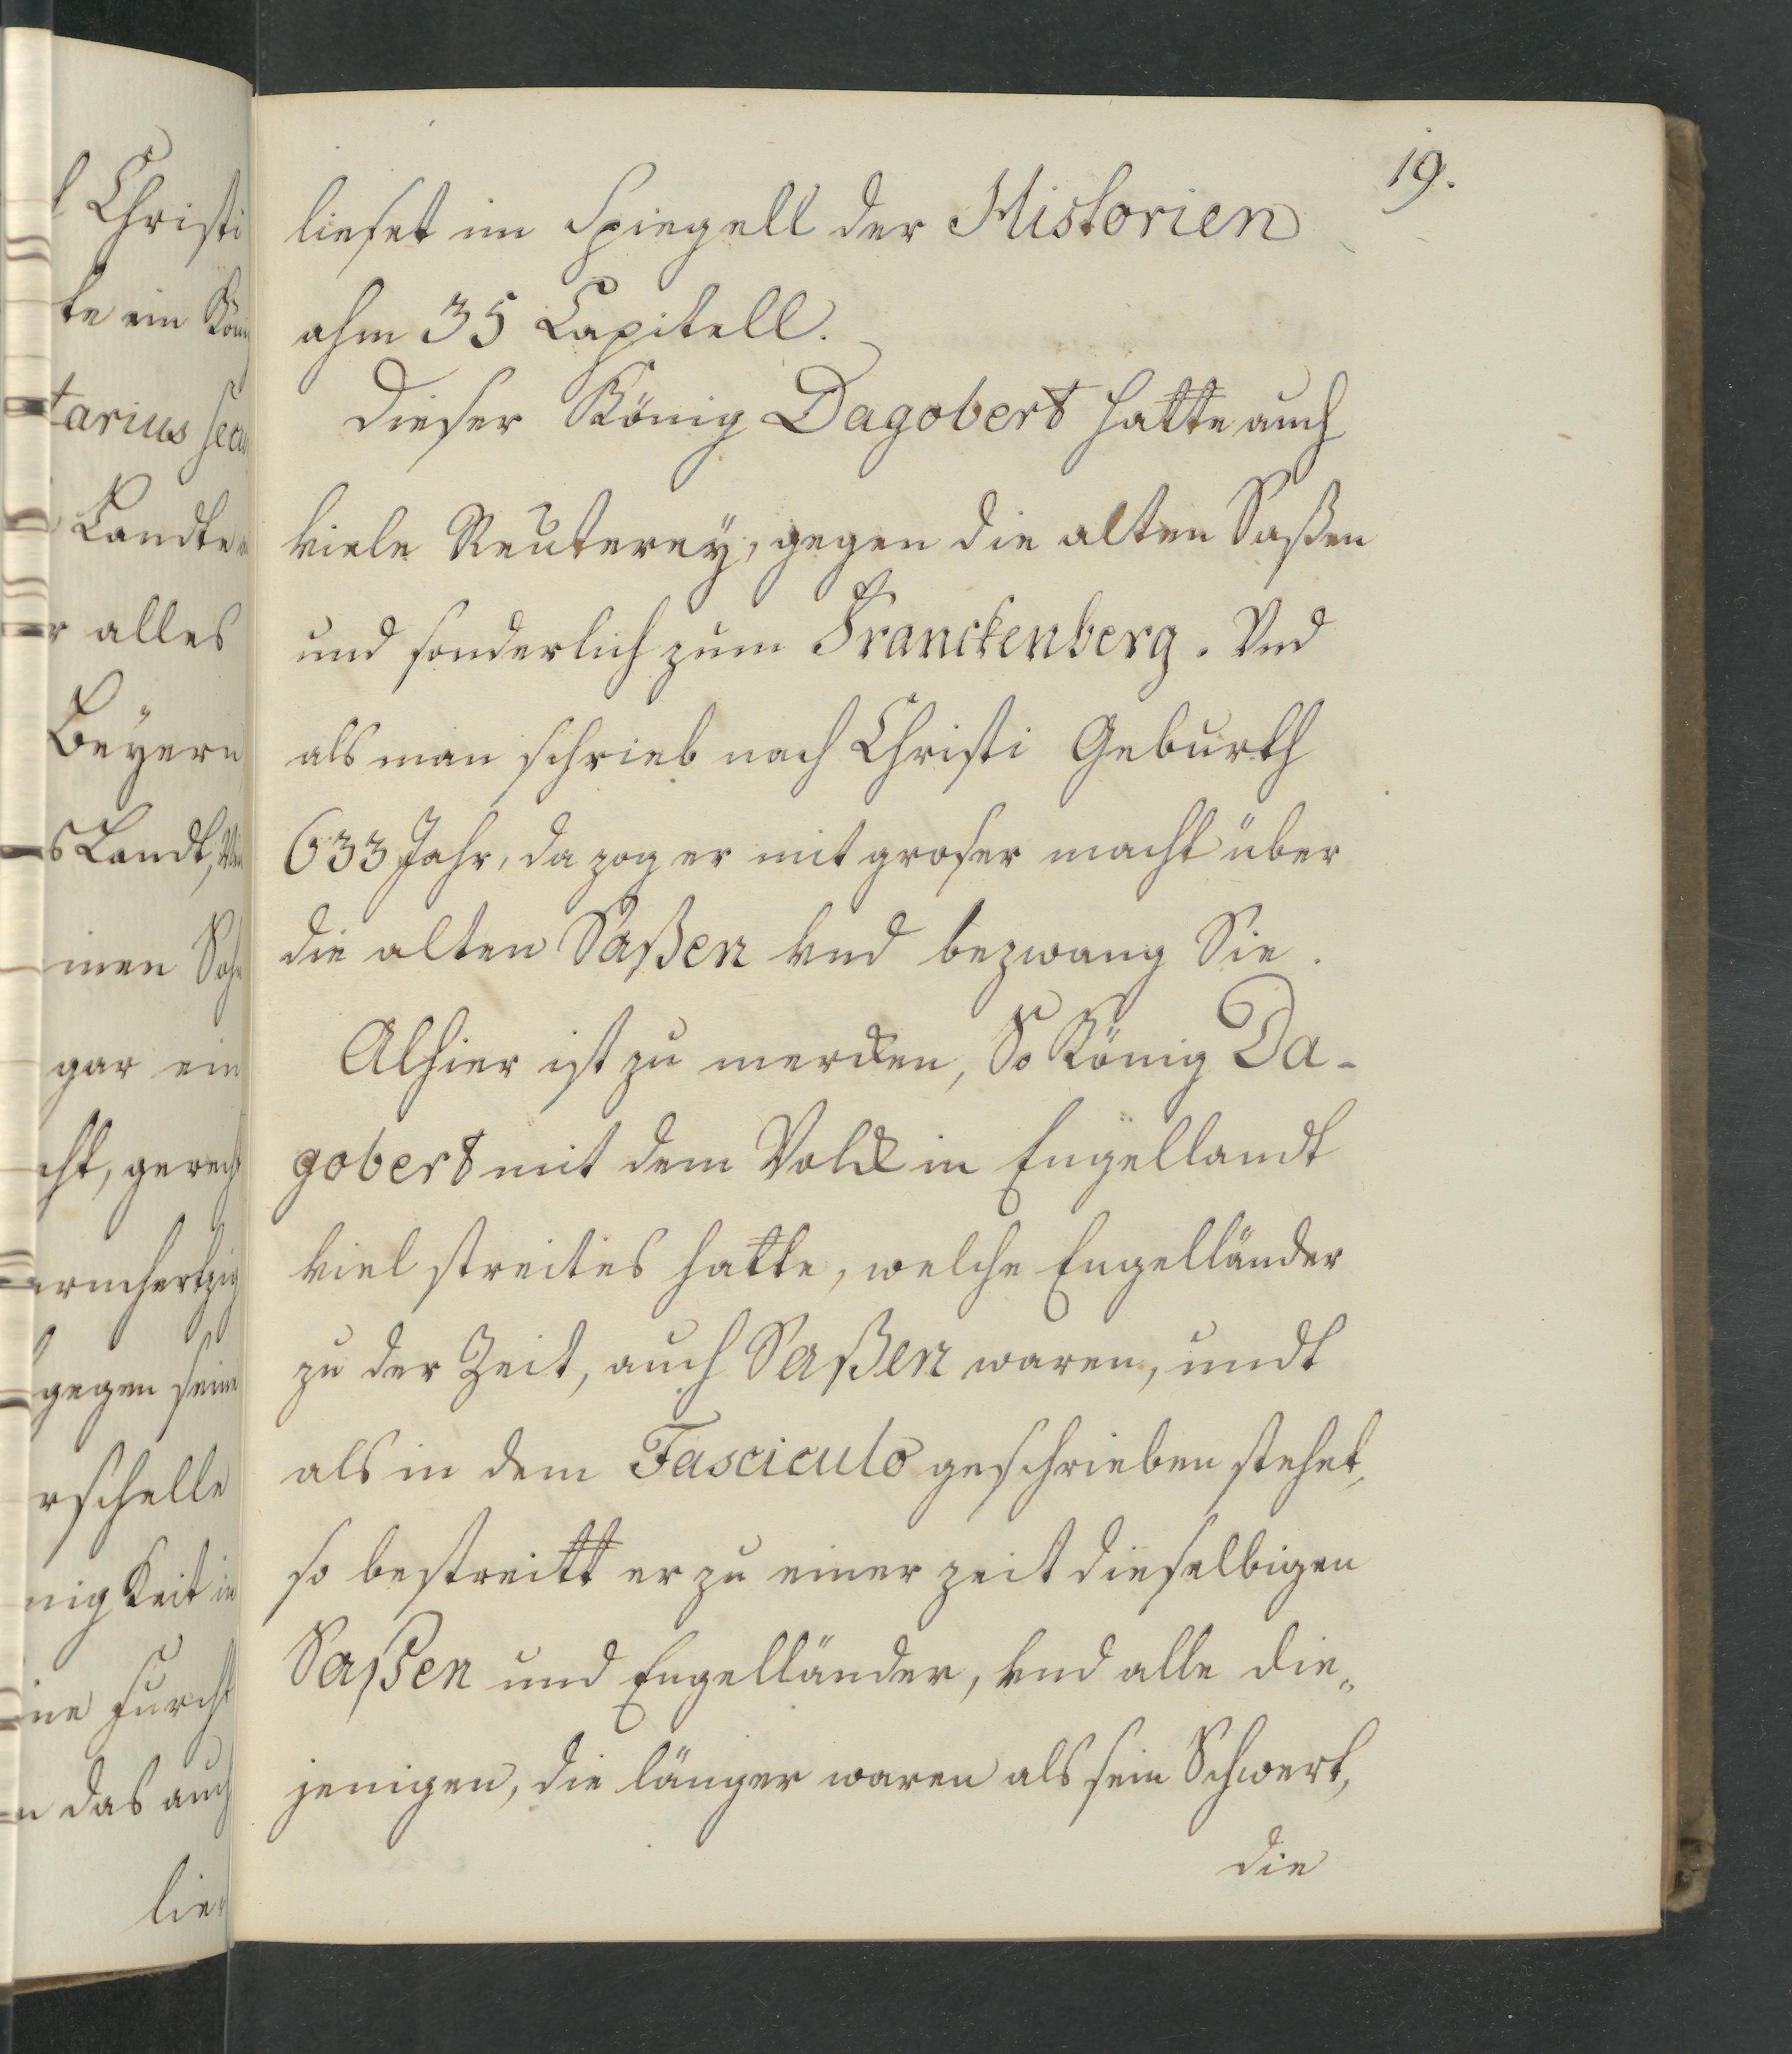 19.
lieset im Spiegell der Historien
ahm 35 Capitell.
Dieser König Dagobert hatte auch
viele Reuterey, gegen die alten Saßen
und sonderlich zum Franckenberg. Vnd
als man schrieb nach Christi Geburth
633 Jahr, da zog er mit groser macht über
die alten Saßen vnd bezwang Sie.
Alhier ist zu mercken, So König Da-
gobert mit dem Volck in Engellandt
viel streites hatte, welche Engelländer
zu der Zeit, auch Saßen waren, undt
als in dem Fasciculo geschrieben stehet,
so bestreitt er zu einer zeit dieselbigen
Saßen und Engelländer, vnd alle die„
jenigen, die länger waren als sein Schwert,
die
Christi
te ein König
tarius
Landte
alles
Beÿern
Landt,
inen Sohn
gar ein
cht, gerecht
armhertzig
gegen seine
rschelle
nigkeit in
ine furcht
das auch
lie„